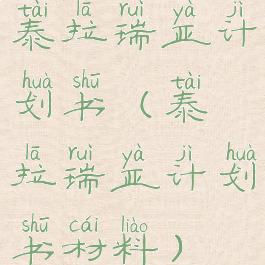 tài lā ruì yà jì
泰拉瑞亚计
huà shū tài
划书（泰
lā ruì yà jì huà
拉瑞亚计划
shū cái liào
书材料）